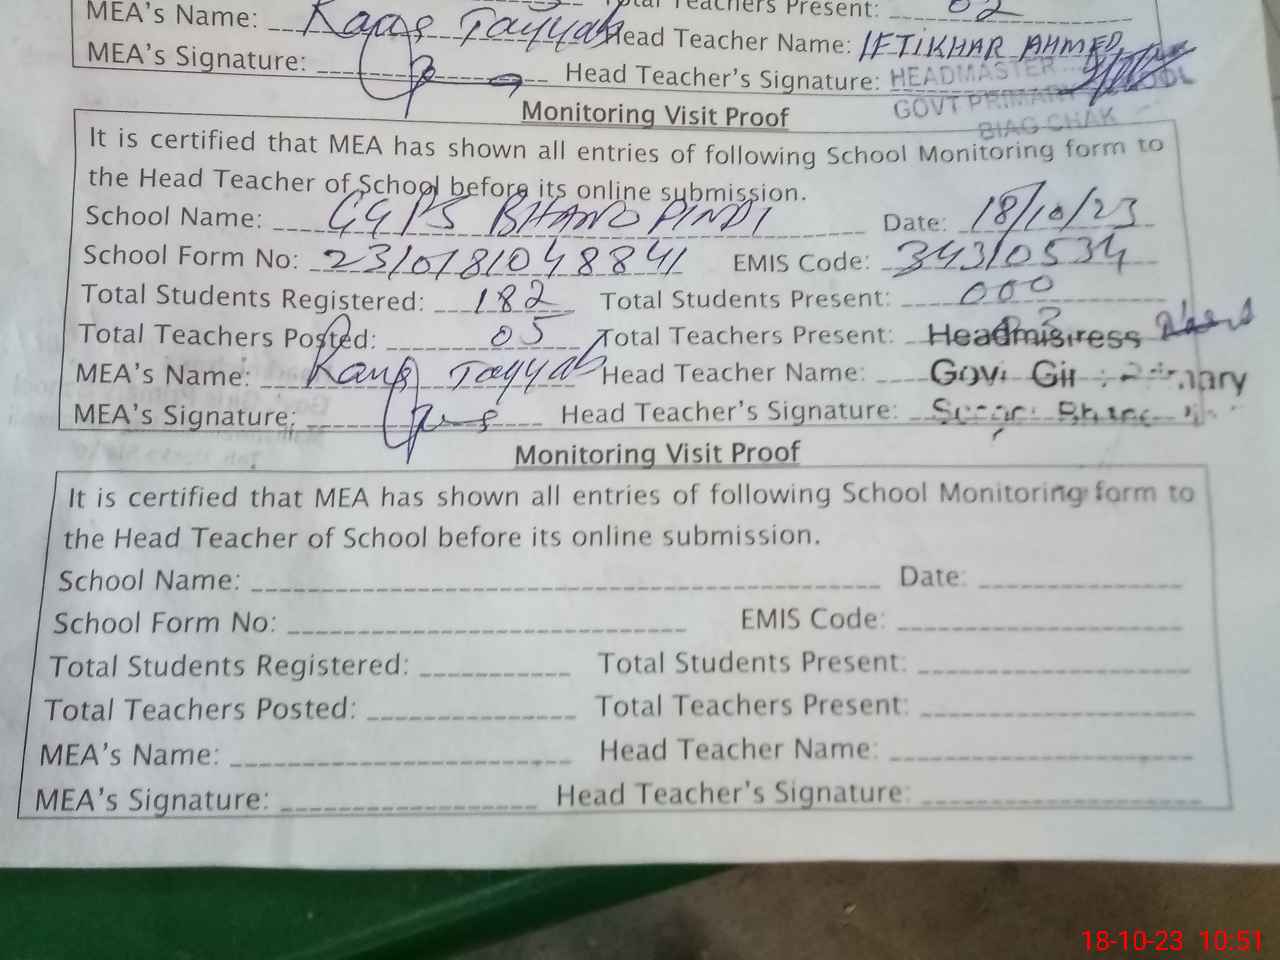 Total Teachers Present: 02
MEA's Name: Tayyab Head Teacher Name: IFTIKHAR AHMED
MEA's Signature: Head Teacher's Signature: HEADMASTER
GOVT PRIMARY SCHOOL
BIAG CHAK
Monitoring Visit Proof
It is certified that MEA has shown all entries of following School Monitoring form to
the Head Teacher of School before its online submission.
School Name: GGPS BHANO PINDI Date: 18/10/23
School Form No: 2310181048841 EMIS Code: 34310534
Total Students Registered: 182 Total Students Present: 000
Total Teachers Posted: 05 Total Teachers Present: Headmistress
MEA's Name: Tayyab Head Teacher Name: Govt Girls Primary
MEA's Signature: Head Teacher's Signature:
Monitoring Visit Proof
It is certified that MEA has shown all entries of following School Monitoring form to
the Head Teacher of School before its online submission.
School Name: Date:
School Form No: EMIS Code:
Total Students Registered: Total Students Present:
Total Teachers Posted: Total Teachers Present:
MEA's Name: Head Teacher Name:
MEA's Signature: Head Teacher's Signature:
18-10-23 10:51